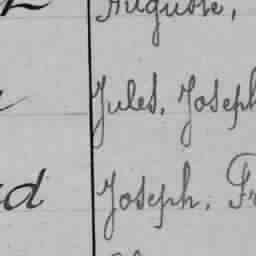 Auguste,
Jules, Joseph
Joseph, Fr